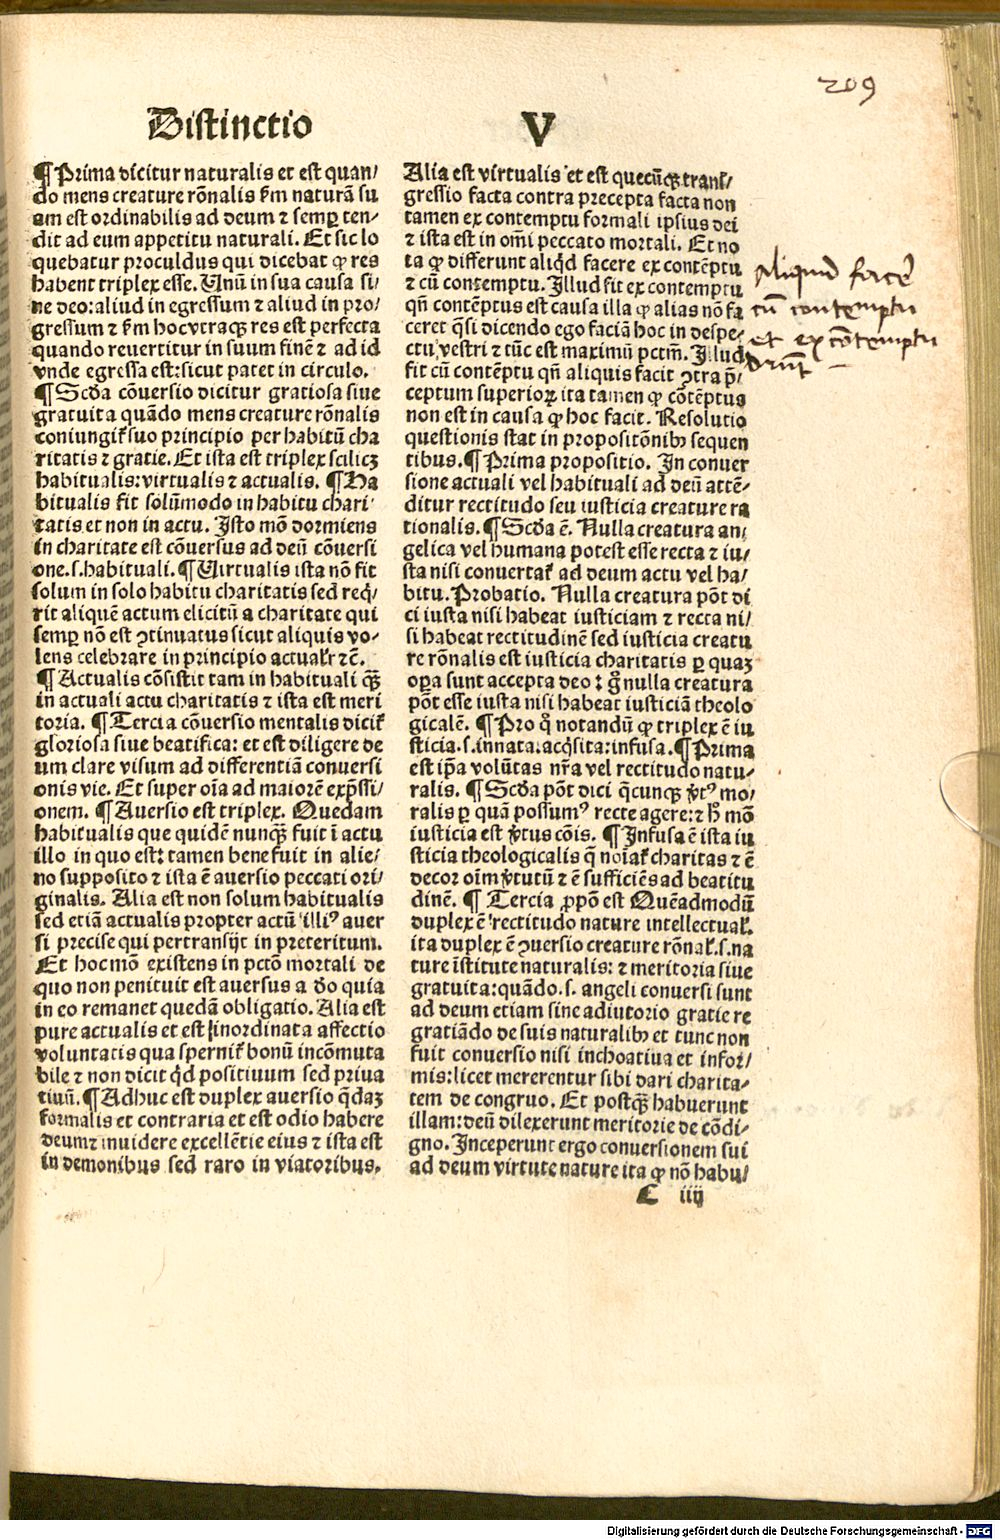 209
Distinctio V
¶ Prima dicitur naturalis et est quan/
do mens creature rōnalis ẜm naturā su
am est ordinabilis ad deum ⁊ semꝑ ten/
dit ad eum appetitu naturali. Et sic lo
quebatur proculdus qui dicebat ꝙ res
habent triplex esse. Unū in sua causa si/
ne deo: aliud in egressum ⁊ aliud in pro/
gressum ⁊ ẜm hoc vtraqꝫ res est perfecta
quando reuertitur in suum finē ⁊ ad id
vnde egressa est: sicut patet in circulo.
¶ Scd̓a cōuersio dicitur gratiosa siue
gratuita quādo mens creature rōnalis
coniungit᷒ suo principio per habitū cha
ritatis ⁊ gratie. Et ista est triplex scilicꝫ
habitualis: virtualis ⁊ actualis. ¶ Ha
bitualis fit solūmodo in habitu chari/
tatis et non in actu. Isto mō dormiens
in charitate est cōuersus ad deū cōuersi
one .s. habituali. ¶ Uirtualis ista nō fit
solum in solo habitu charitatis sed req̇/
rit aliquē actum elicitū a charitate qui
semꝑ nō est ꝯtinuatus sicut aliquis vo/
lens celebrare in principio actualr̄ ⁊cē.
¶ Actualis cōsistit tam in habituali qꝫ̄
in actuali actu charitatis ⁊ ista est meri
toria. ¶ Tercia cōuersio mentalis dicit᷒
gloriosa siue beatifica: et est diligere de
um clare visum ad differentiā conuersi
onis vie. Et super oīa ad maiorē exp̄ssi/
onem. ¶ Auersio est triplex. Quedam
habitualis que quidē nunqꝫ̄ fuit ī actu
illo in quo est: tamen bene fuit in alie/
no supposito ⁊ ista ē auersio peccati ori/
ginalis. Alia est non solum habitualis
sed etiā actualis propter actū illiꝰ auer
si precise qui pertransijt in preteritum.
Et hoc mō existens in pctō mortali de
quo non penituit est auersus a do quia
in eo remanet quedā obligatio. Alia est
pure actualis et est inordinata affectio
voluntatis qua spernit᷒ bonū incōmuta
bile ⁊ non dicit qd̓ positiuum sed priua
tiuū. ¶ Adhuc est duplex auersio q̄daꝫ
formalis et contraria et est odio habere
deum ⁊ inuidere excellētie eius ⁊ ista est
in demonibus sed raro in viatoribus.
Alia est virtualis et est quecūqꝫ trans/
gressio facta contra precepta facta non
tamen ex contemptu formali ipsius dei
⁊ ista est in om̄i peccato mortali. Et no
ta ꝙ differunt aliq̇d facere ex contēptu
⁊ cū contemptu. Illud fit ex contemptu
qn̄ contēptus est causa illa ꝙ alias nō fa
ceret q̄si dicendo ego faciā hoc in despe/
ctū vestri ⁊ tūc est maximū pctm̄. Illud
fit cū contēptu qn̄ aliquis facit ꝯtra p̄/
ceptum superioꝝ ita tamen ꝙ cōtēptus
non est in causa ꝙ hoc facit. Resolutio
questionis stat in propositōnibꝫ sequen
tibus. ¶ Prima propositio. In conuer
sione actuali vel habituali ad deū attē/
ditur rectitudo seu iusticia creature ra
tionalis. ¶ Scd̓a ē. Nulla creatura an/
gelica vel humana potest esse recta ⁊ iu/
sta nisi conuertat᷒ ad deum actu vel ha/
bitu. Probatio. Nulla creatura pōt di
ci iusta nisi habeat iusticiam ⁊ recta ni/
si habeat rectitudinē sed iusticia creatu
re rōnalis est iusticia charitatis ꝑ quaꝫ
oꝑa sunt accepta deo: g̊ nulla creatura
pōt esse iusta nisi habeat iusticiā theolo
gicalē. ¶ Pro q̊ notandū ꝙ triplex ē iu
sticia .s. innata: acq̇sita: infusa. ¶ Prima
est ip̄a volūtas nr̄a vel rectitudo natu/
ralis. ¶ Scd̓a pōt dici q̄cunqꝫ v̓tꝰ mo/
ralis ꝑ quā possumꝰ recte agere: ⁊ h̓ mō
iusticia est v̓tus cōis. ¶ Infusa ē ista iu
sticia theologicalis q̄ noīat᷒ charitas ⁊ ē
decor oīm v̓tutū ⁊ ē sufficiēs ad beatitu
dinē. ¶ Tercia ꝓpō est Quēadmodū
duplex ē rectitudo nature intellectual᷒.
ita duplex ē ꝯuersio creature rōnal᷒ .s. na
ture īstitute naturalis: ⁊ meritoria siue
gratuita: quādo .s. angeli conuersi sunt
ad deum etiam sine adiutorio gratie re
gratiādo de suis naturalibꝫ et tunc non
fuit conuersio nisi inchoatiua et infor/
mis: licet mererentur sibi dari charita/
tem de congruo. Et postqꝫ̄ habuerunt
illam: deū dilexerunt meritorie de cōdi/
gno. Inceperunt ergo conuersionem sui
ad deum virtute nature ita ꝙ nō habu/
C iiij
aliquid facē
cū contemptu
et ex cōtemptu
Digitalisierung gefördert durch die Deutsche Forschungsgemeinschaft - DFG